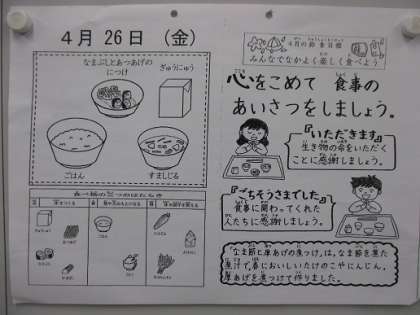 4月 26日 (金)
なまぶしとあつあげの
につけ
ぎゅうにゅう
ごはん
すましじる
4月の給食目標
みんなでなかよく楽しく食べよう
心をこめて 食事の
あいさつをしましょう。
『いただきます』
生き物の命をいただく
ことに感謝しましょう。
『ごちそうさまでした』
食事に関わってくれた
人たちに感謝しましょう。
「なま節と厚あげの煮つけ」は、なま節を煮た
煮汁で、春においしいたけのこやにんじん、
厚あげを煮つけて作りました。